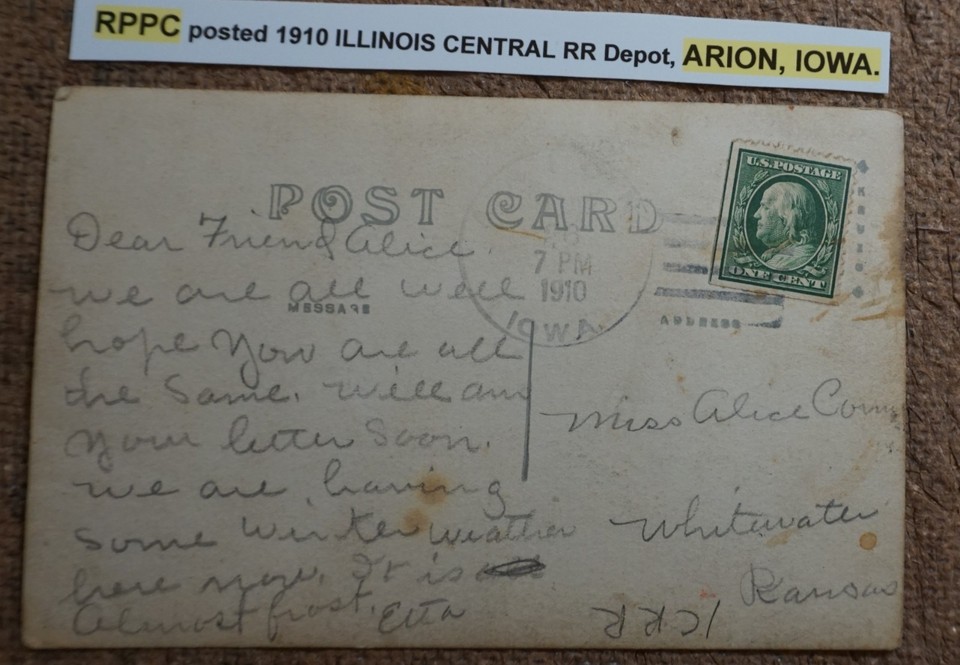 RPPC posted 1910 ILLINOIS CENTRAL RR Depot, ARION, IOWA.
POST CARD
U.S. POSTAGE
ONE CENT
KRUXO
7 PM
1910
IOWA
MESSAGE
ADDRESS
Dear Friend Alice.
we are all well
hope you are all
the same. Will ans
your letter soon.
we are having
some winter weather
here now. It is
Almost frost. Etta
Miss Alice
Whitewater
Kansas
ICRR